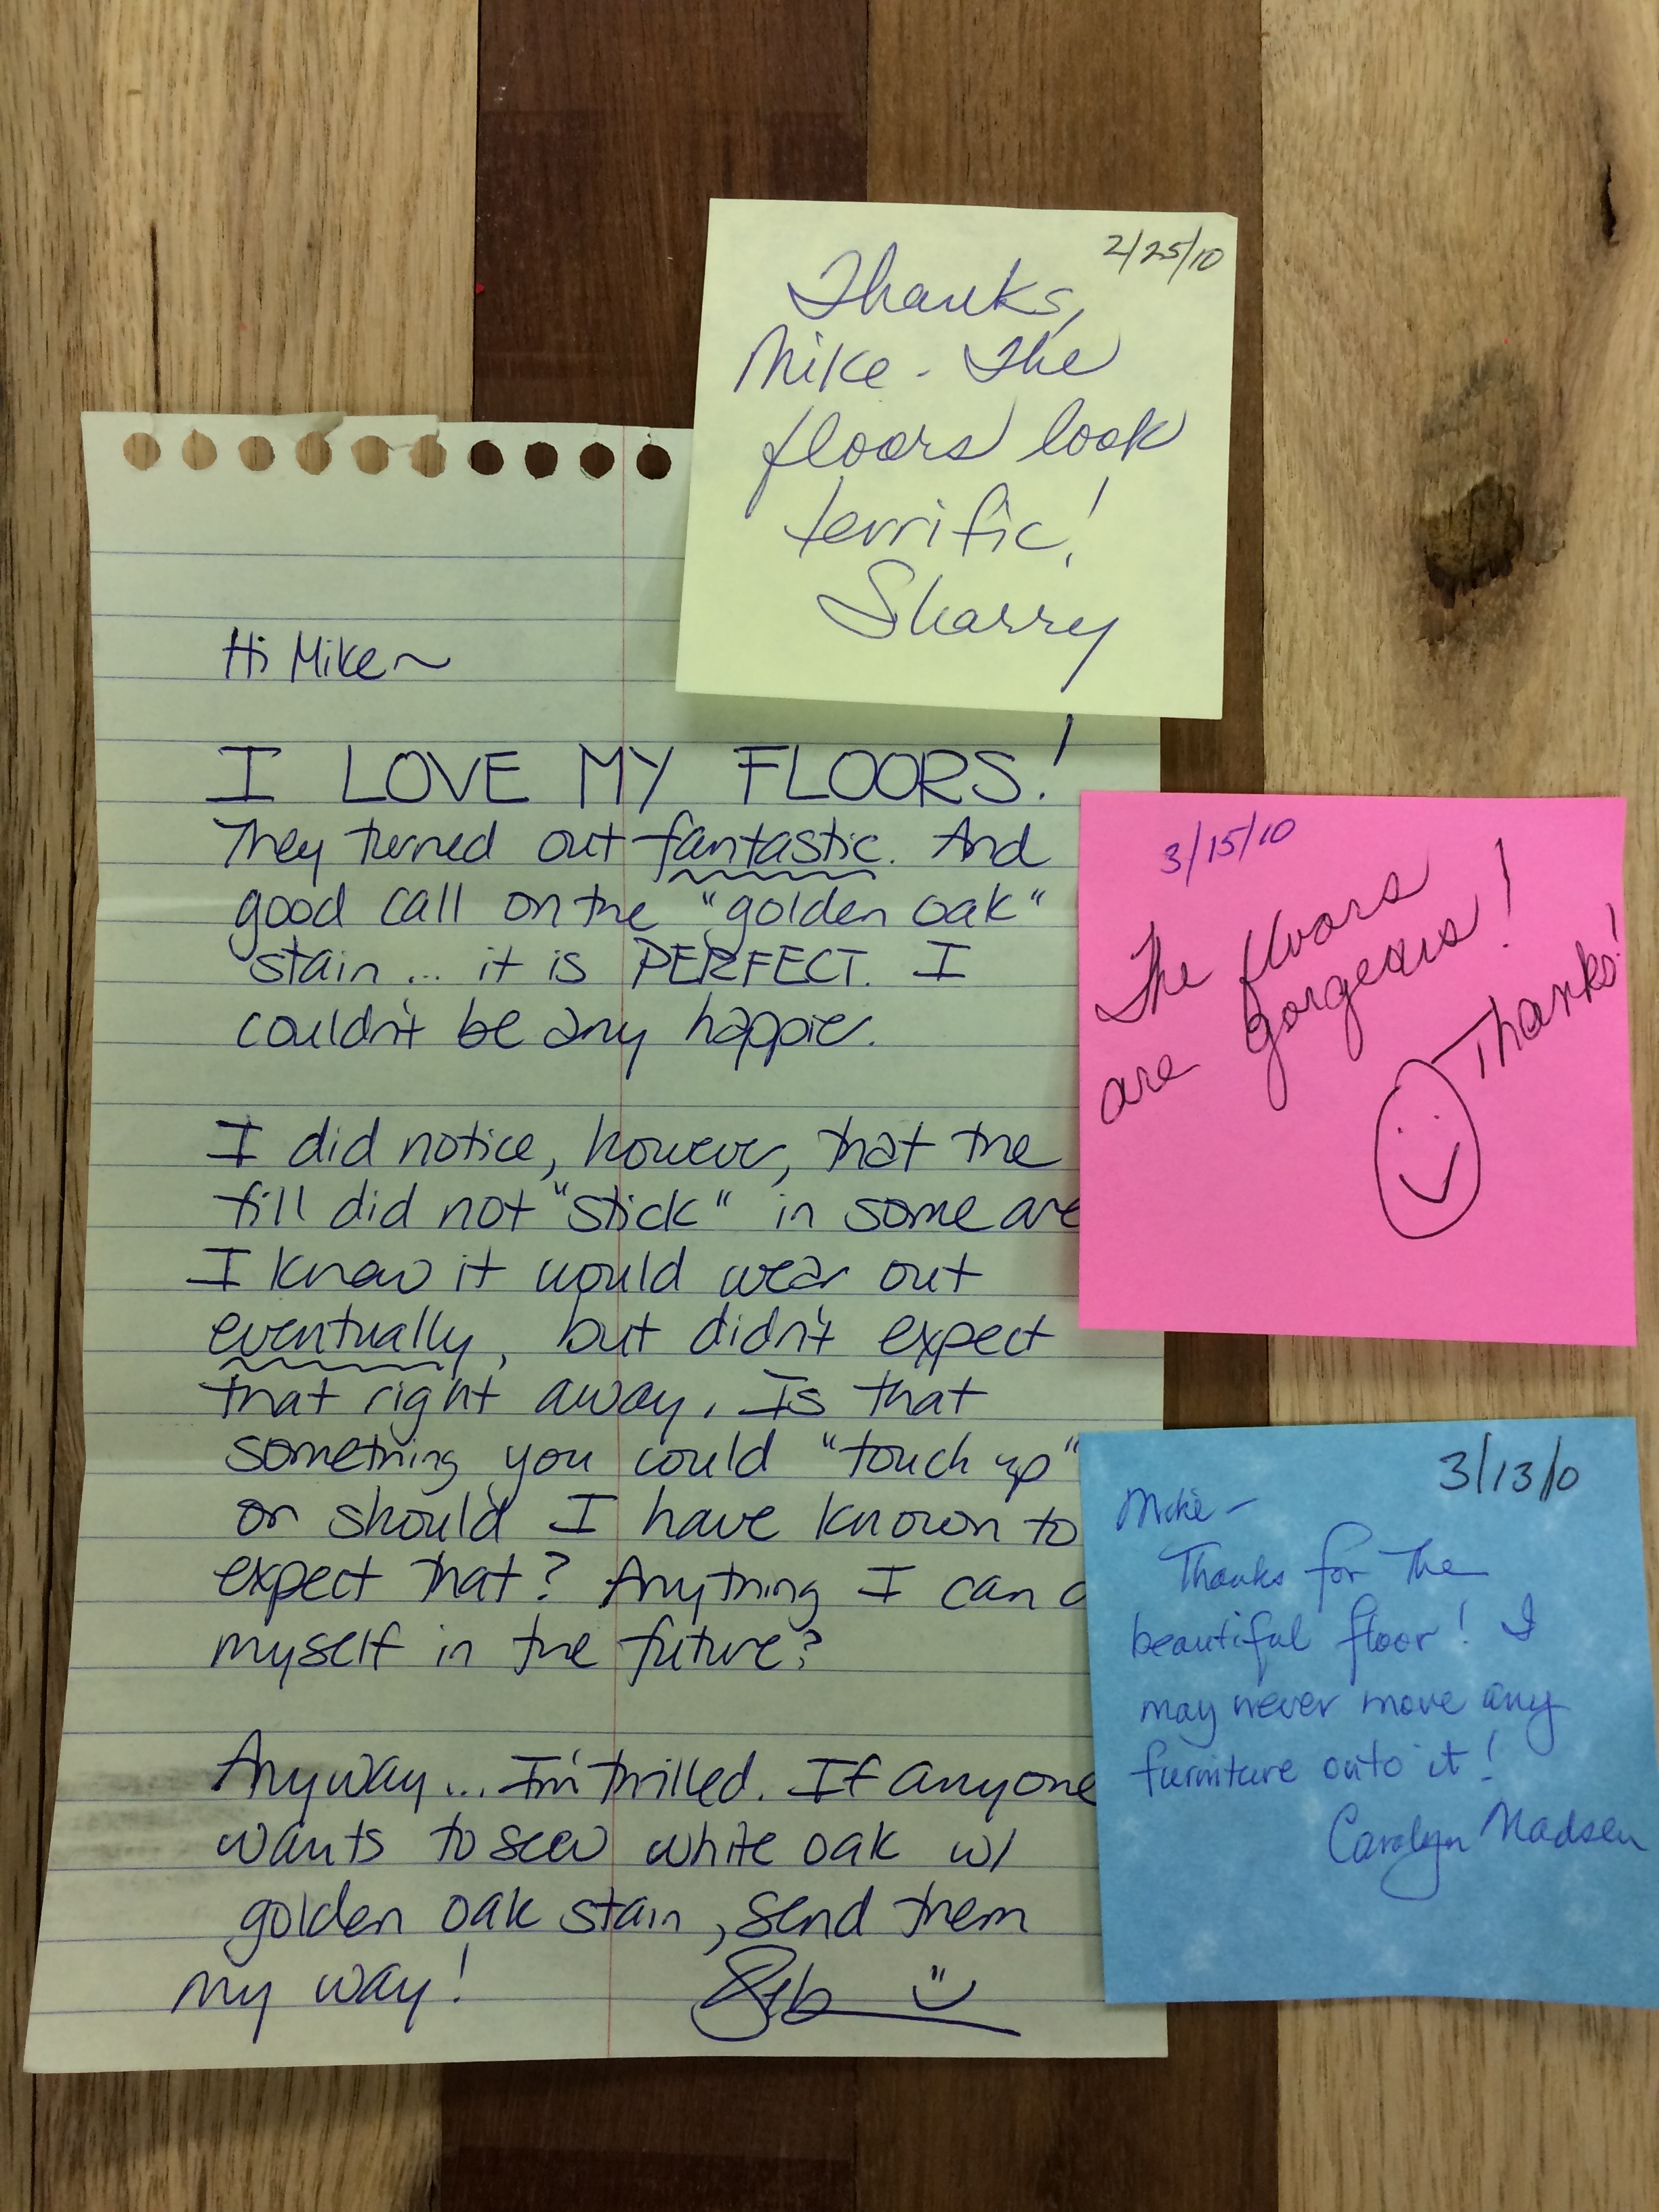 2/25/10
Thanks,
Mike. The
floors look
terrific!
Sharry
Hi Mike~
I LOVE MY FLOORS!
They turned out fantastic. And
good call on the "golden oak"
stain... it is PERFECT. I
couldn't be any happier.
I did notice, however, that the
fill did not "stick" in some are
I know it would wear out
eventually, but didn't expect
that right away. Is that
something you could "touch up"
or should I have known to
expect that? Anything I can
myself in the future?
Anyway... I'm thrilled. If anyone
wants to see white oak w/
golden oak stain, send them
my way!
3/15/10
The floors
are gorgeous!
Thanks!
3/13/10
Mike-
Thanks for the
beautiful floor! I
may never move any
furniture onto it!
Carolyn Madsen